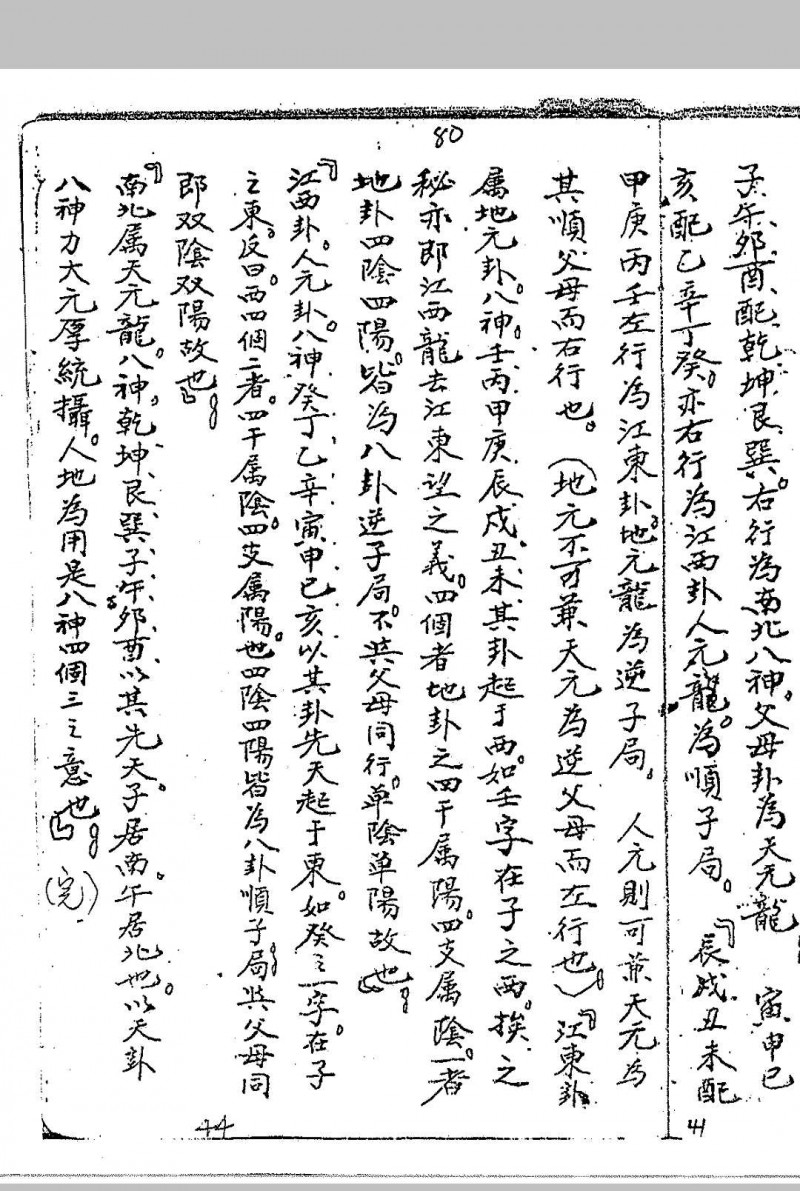 80
子、午、卯、酉、配乾、坤、艮、巽。右行為南北八神。父母卦為天元龍 寅申巳
亥配乙辛丁癸。亦右行為江西卦人元龍。為順子局。『辰戌丑未配
甲庚丙壬左行為江東卦。地元龍為逆子局。 人元則可兼天元為
其順父母而右行也。(地元不可兼天元為逆父母而左行也。)『江東卦
属地元卦。八神。壬、丙、甲庚、辰戌、丑未、其卦起于西。如壬字在子之西。挨之
秘亦即江西龍去江東望之義。四個者地卦之四干属陽。四支属陰。一者
地卦四陰四陽。皆為八卦逆子局。不共父母同行。单陰单陽故也。』
『江西卦。人元卦。八神癸丁乙辛、寅申巳亥以其卦先天起于東。如癸之一字在子
之東。反曰。西四個二者。四干属陰。四支属陽。也四陰四陽皆為八卦順子局。共父母同
即双陰双陽故也。』
『南北属天元龍。八神。乾、坤、艮、巽、子、午、卯、酉以其先天子居南。午居北也。以天卦
八神力大元厚統攝。人地為用是八神四個三之意也。』(完)
44
41